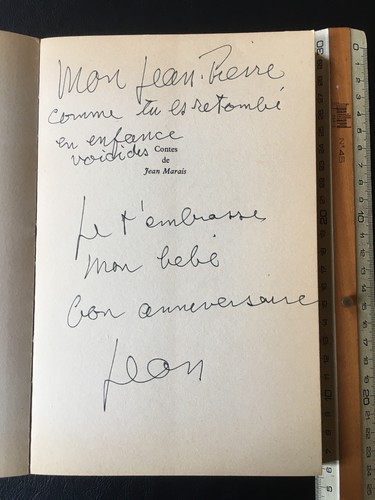 Mon Jean-Pierre
comme tu es retombé
en enfance
voici des Contes
de
Jean Marais
Je t'embrasse
mon bébé
bon anniversaire
Jean
N° 45